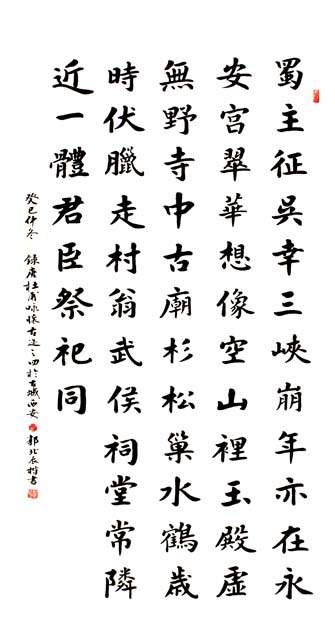 蜀主征吳幸三峽崩年亦在永
安宮翠華想像空山裡玉殿虛
無野寺中古廟杉松巢水鶴歲
時伏臘走村翁武侯祠堂常隣
近一體君臣祭祀同
癸巳仲冬 錄唐杜甫詠懷古迹之四於古城西安 郭北辰 書